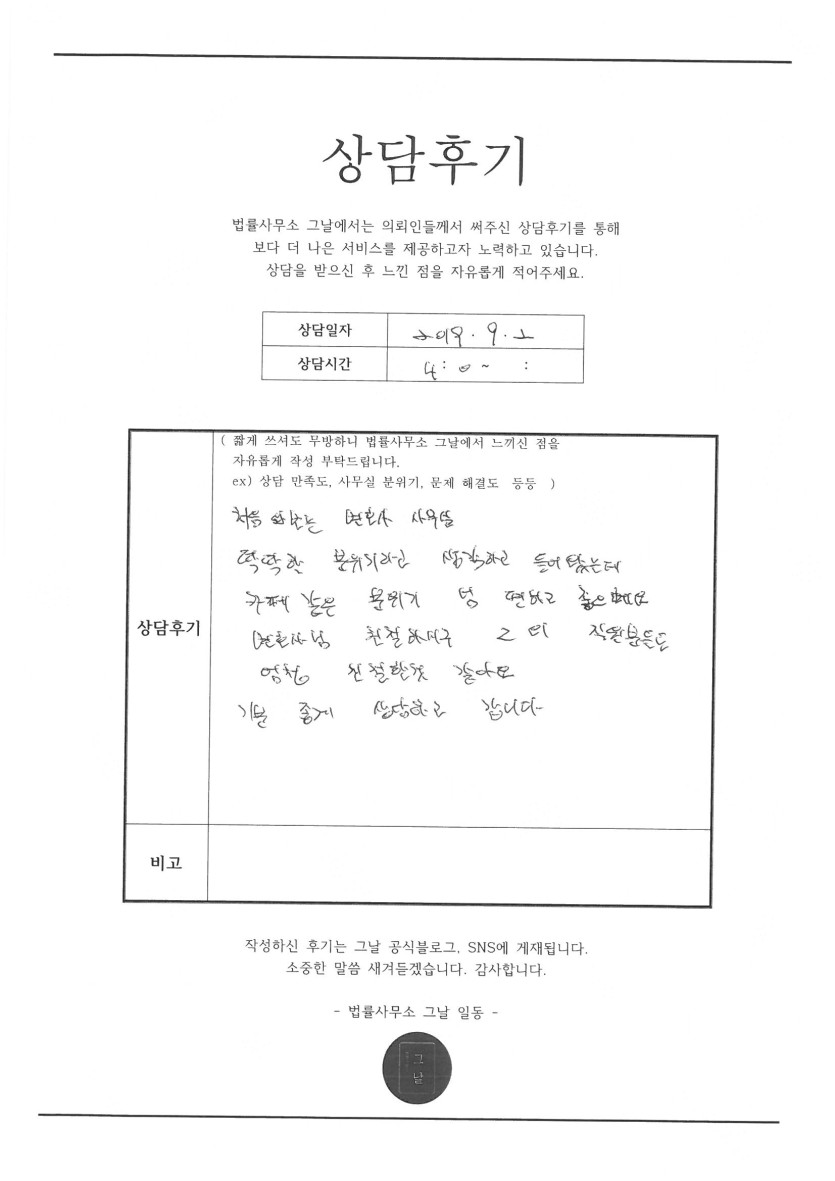 상담후기
법률사무소 그날에서는 의뢰인들께서 써주신 상담후기를 통해
보다 더 나은 서비스를 제공하고자 노력하고 있습니다.
상담을 받으신 후 느낀 점을 자유롭게 적어주세요.
상담일자 2019. 9. 2
상담시간 4:0 ~ :
( 짧게 쓰셔도 무방하니 법률사무소 그날에서 느끼신 점을
자유롭게 작성 부탁드립니다.
ex) 상담 만족도, 사무실 분위기, 문제 해결도 등등 )
상담후기
처음 와보는 변호사 사무실
딱딱할 분위기라고 생각하고 들어 왔는데
카페 같은 분위기 넘 편하고 좋은
변호사님 친절하시구 그 외 직원분들도
엄청 친절한것 같아요
기분 좋게 상담하고 갑니다-
비고
작성하신 후기는 그날 공식블로그, SNS에 게재됩니다.
소중한 말씀 새겨듣겠습니다. 감사합니다.
- 법률사무소 그날 일동 -
그
날